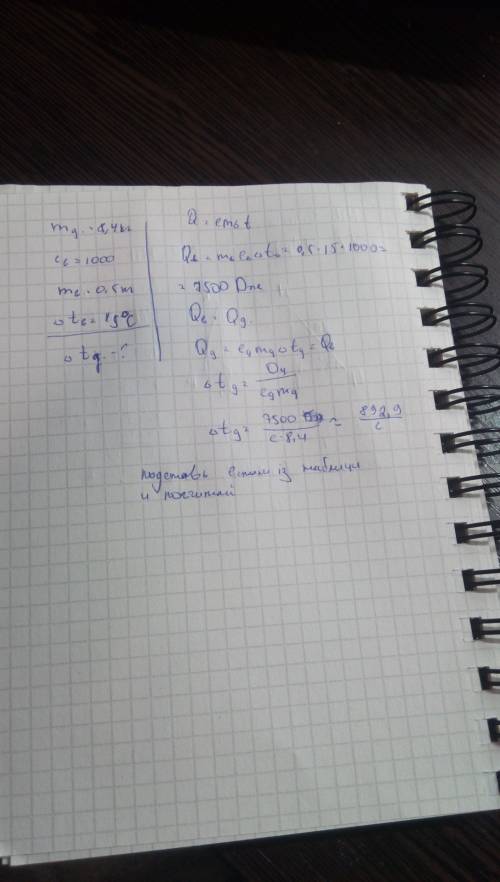 m_g = 8,4 кг
c_в = 1000
m_в = 0,5 m
Δt_в = 15°C
Δt_g - ?
Q = cmΔt
Q_в = m_в c_в Δt_в = 0,5 · 15 · 1000 =
= 7500 Dже
Q_в = Q_g
Q_g = c_g m_g Δt_g = Q_в
Δt_g = Q_g / c_g m_g
Δt_g = 7500 / c · 8,4 = 892,9 / c
подставь из таблици
и посчитай